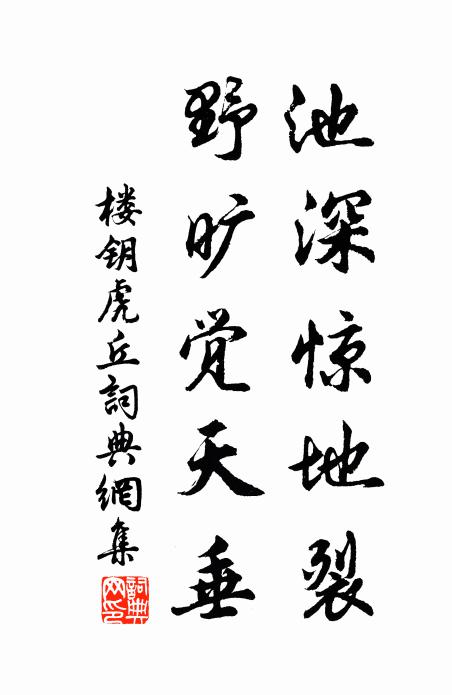 池深惊地裂
野旷觉天垂
楼钥虎丘詞典網集
詞典
网印